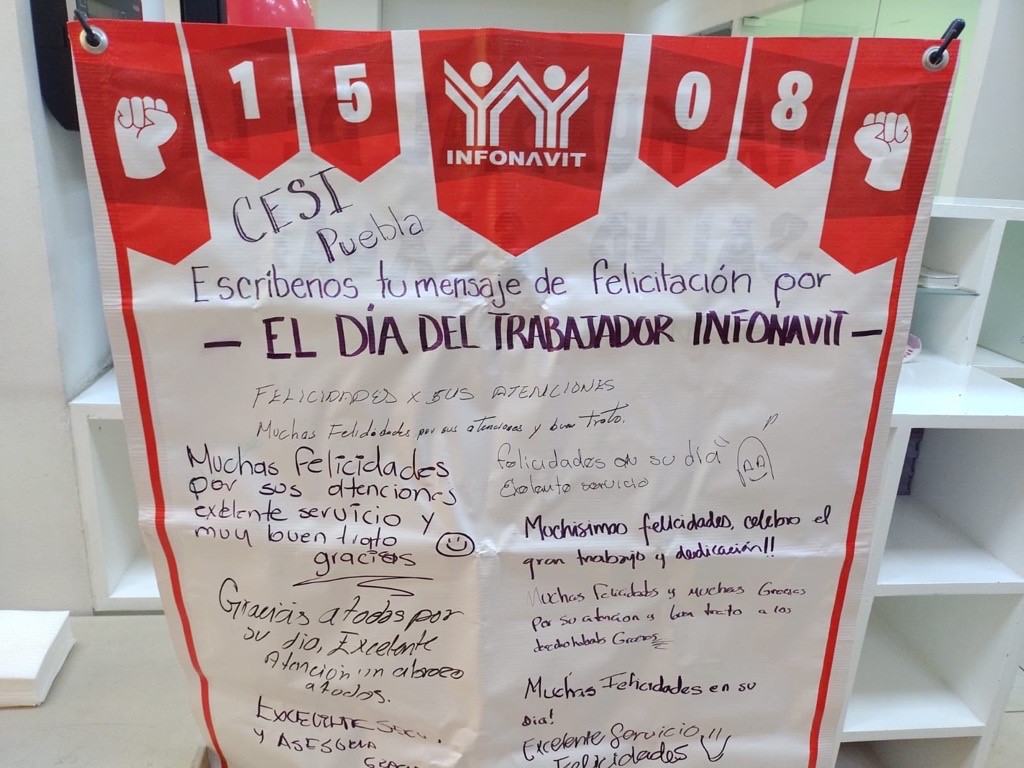 15 INFONAVIT 08
CESI
Puebla
Escríbenos tu mensaje de felicitación por
— EL DÍA DEL TRABAJADOR INFONAVIT —
FELICIDADES X SUS ATENCIONES
Muchas Felicidades por sus atenciones y buen trato.
Muchas felicidades
por sus atenciones
exelente servicio y
muy buen trato
gracias
felicidades en su día
Exelente servicio
Muchisimas felicidades, celebro el
gran trabajo y dedicación!!
Gracias a todos por
su dia, Excelente
Atención un abrazo
a todos.
Muchas Felicidades y muchas Gracias
por su atencion y buen trato a los
Gracias
Muchas Felicidades en su
Dia!
EXCELENTE
Y ASESORIA
Excelente Servicio
Felicidades